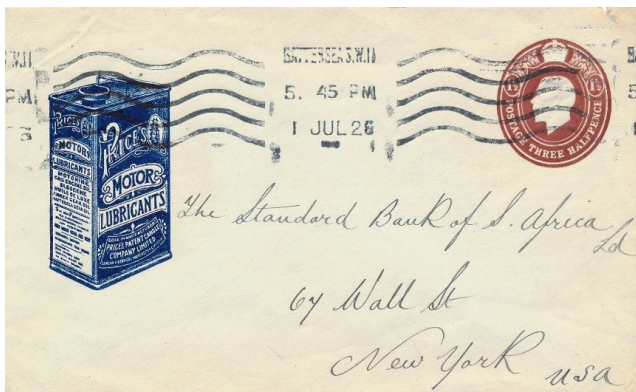 BATTERSEA S.W.11
5. 45 PM
1 JUL 26
S.W.11
PM
POSTAGE THREE HALFPENCE
PRICE'S
MOTOR
LUBRICANTS
PRICE'S PATENT CANDLE
COMPANY LIMITED
PRICE'S
MOTOR
LUBRICANTS
The Standard Bank of S. Africa
Ld
67 Wall St
New York
USA